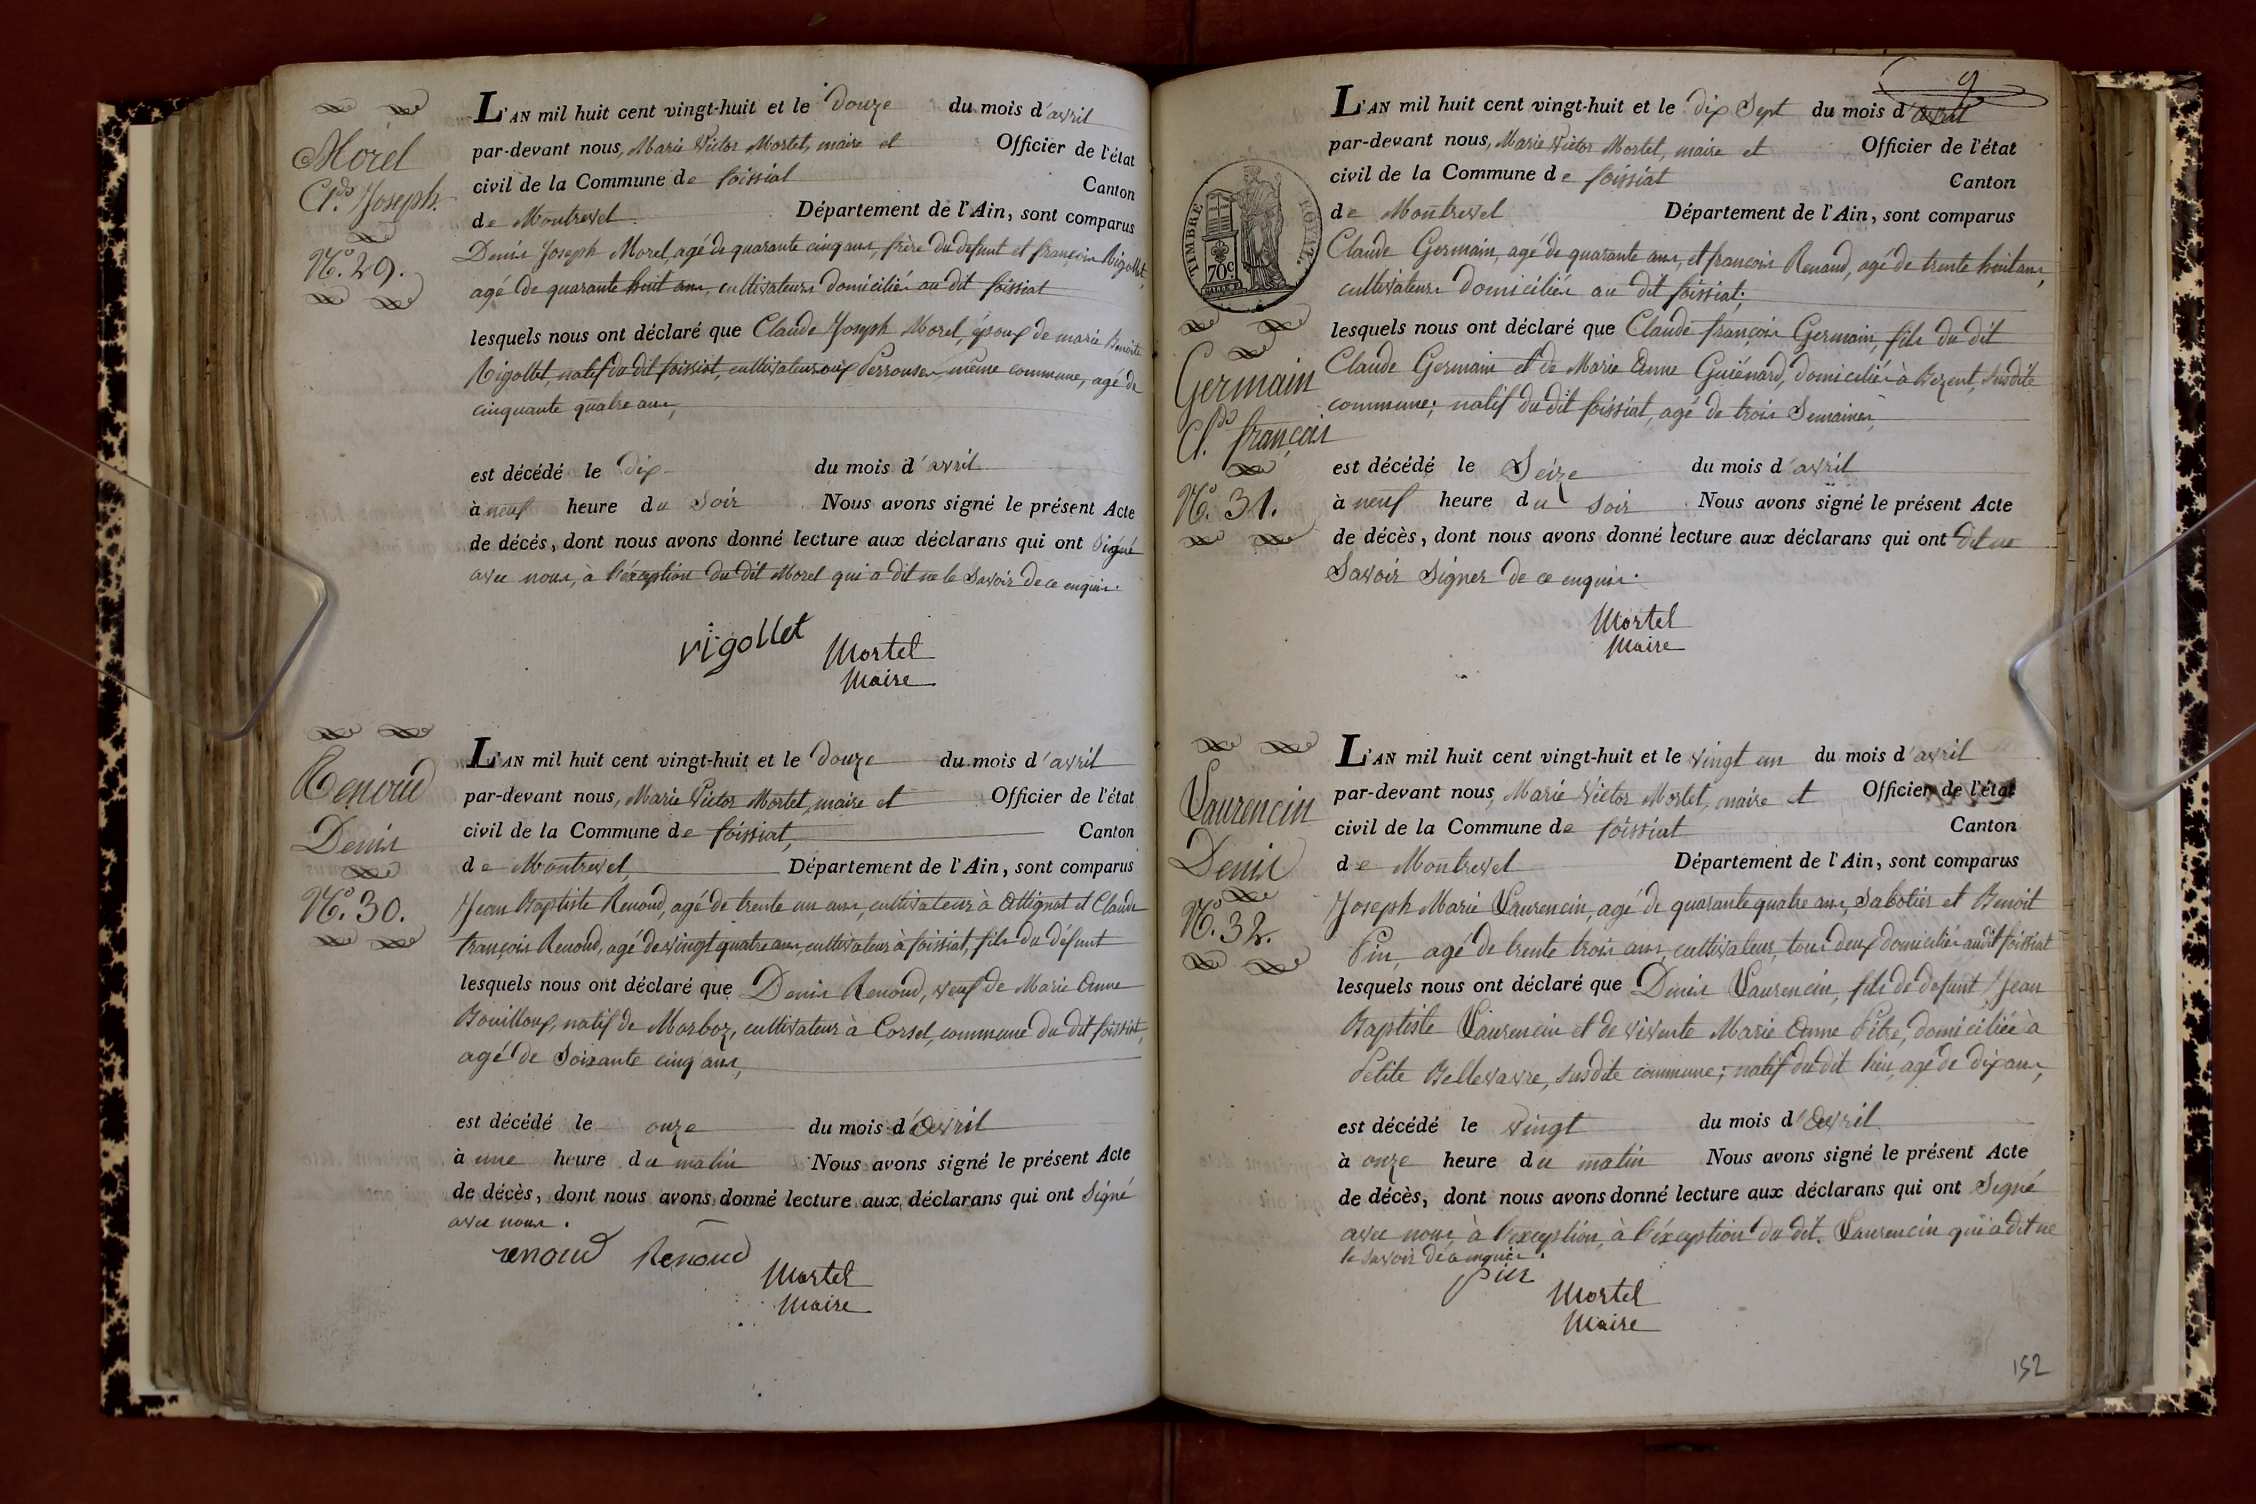 Morel
Cl.de Joseph.
N.° 29.
L'AN mil huit cent vingt-huit et le douze du mois d'avril
par-devant nous, Marie Victor Mortel, maire et Officier de l'état
civil de la Commune de foissiat Canton
de Montrevel Département de l'Ain, sont comparus
Denis Joseph Morel, agé de quarante cinq ans, frère du defunt et françois Rigollet,
agé de quarante huit ans, cultivateurs domiciliés au dit foissiat
lesquels nous ont déclaré que Claude Joseph Morel, époux de marie Benoite
Rigollet, natif du dit foissiat, cultivateur aux Perrouses, même commune, agé de
cinquante quatre ans,
est décédé le dix du mois d'avril
à neuf heure du Soir Nous avons signé le présent Acte
de décés, dont nous avons donné lecture aux déclarans qui ont Signé
avec nous, à l'éxception du dit Morel qui a dit ne le Savoir de ce enquis.
rigollet Mortel
Maire
Renoud
Denis
N.° 30.
L'AN mil huit cent vingt-huit et le douze du mois d'avril
par-devant nous, Marie Victor Mortel, maire et Officier de l'état
civil de la Commune de foissiat, Canton
de Montrevel, Département de l'Ain, sont comparus
Jean Baptiste Renoud, agé de trente un ans, cultivateur à Attignat et Claude
françois Renoud, agé de vingt quatre ans, cultivateur à foissiat, fils du défunt
lesquels nous ont déclaré que Denis Renoud, veuf de Marie Anne
Bouilloux, natif de Marboz, cultivateur à Corsel, commune du dit foissiat,
agé de Soixante cinq ans,
est décédé le onze du mois d'Avril
à une heure du matin Nous avons signé le présent Acte
de décès, dont nous avons donné lecture aux déclarans qui ont Signé
avec nous.
renoud Renoud
Mortel
Maire
9
TIMBRE ROYAL
70c
Germain
Cl.de françois
N.° 31.
L'AN mil huit cent vingt-huit et le dix Sept du mois d'avril
par-devant nous, Marie Victor Mortel, maire et Officier de l'état
civil de la Commune de foissiat Canton
de Montrevel Département de l'Ain, sont comparus
Claude Germain, agé de quarante ans, et françois Renaud, agé de trente huit ans,
cultivateurs domiciliés au dit foissiat;
lesquels nous ont déclaré que Claude françois Germain, fils du dit
Claude Germain et de Marie Anne Guiénard, domiciliés à Bezent, Susdite
commune; natif du dit foissiat, agé de trois Semaines,
est décédé le Seize du mois d'avril
à neuf heure du Soir Nous avons signé le présent Acte
de décès, dont nous avons donné lecture aux déclarans qui ont dit ne
Savoir Signer de ce enquis.
Mortel
Maire
Laurencin
Denis
N.° 32.
L'AN mil huit cent vingt-huit et le vingt un du mois d'avril
par-devant nous, Marie Victor Mortel, maire et Officier de l'état
civil de la Commune de foissiat Canton
de Montrevel Département de l'Ain, sont comparus
Joseph Marie Laurencin, agé de quarante quatre ans, Sabotier et Benoit
Pin, agé de trente trois ans, cultivateur, tous deux domiciliés audit foissiat
lesquels nous ont déclaré que Denis Laurencin, fils de defunt Jean
Baptiste Laurencin et de vivente Marie Anne Pitre, domiciliée à
Petite Bellevavre, susdite commune; natif du dit lieu, agé de dix ans,
est décédé le vingt du mois d'Avril
à onze heure du matin Nous avons signé le présent Acte
de décès, dont nous avons donné lecture aux déclarans qui ont Signé
avec nous, à l'exception, à l'éxception du dit Laurencin qui a dit ne
le savoir de ce enquis.
Mortel
Maire
152